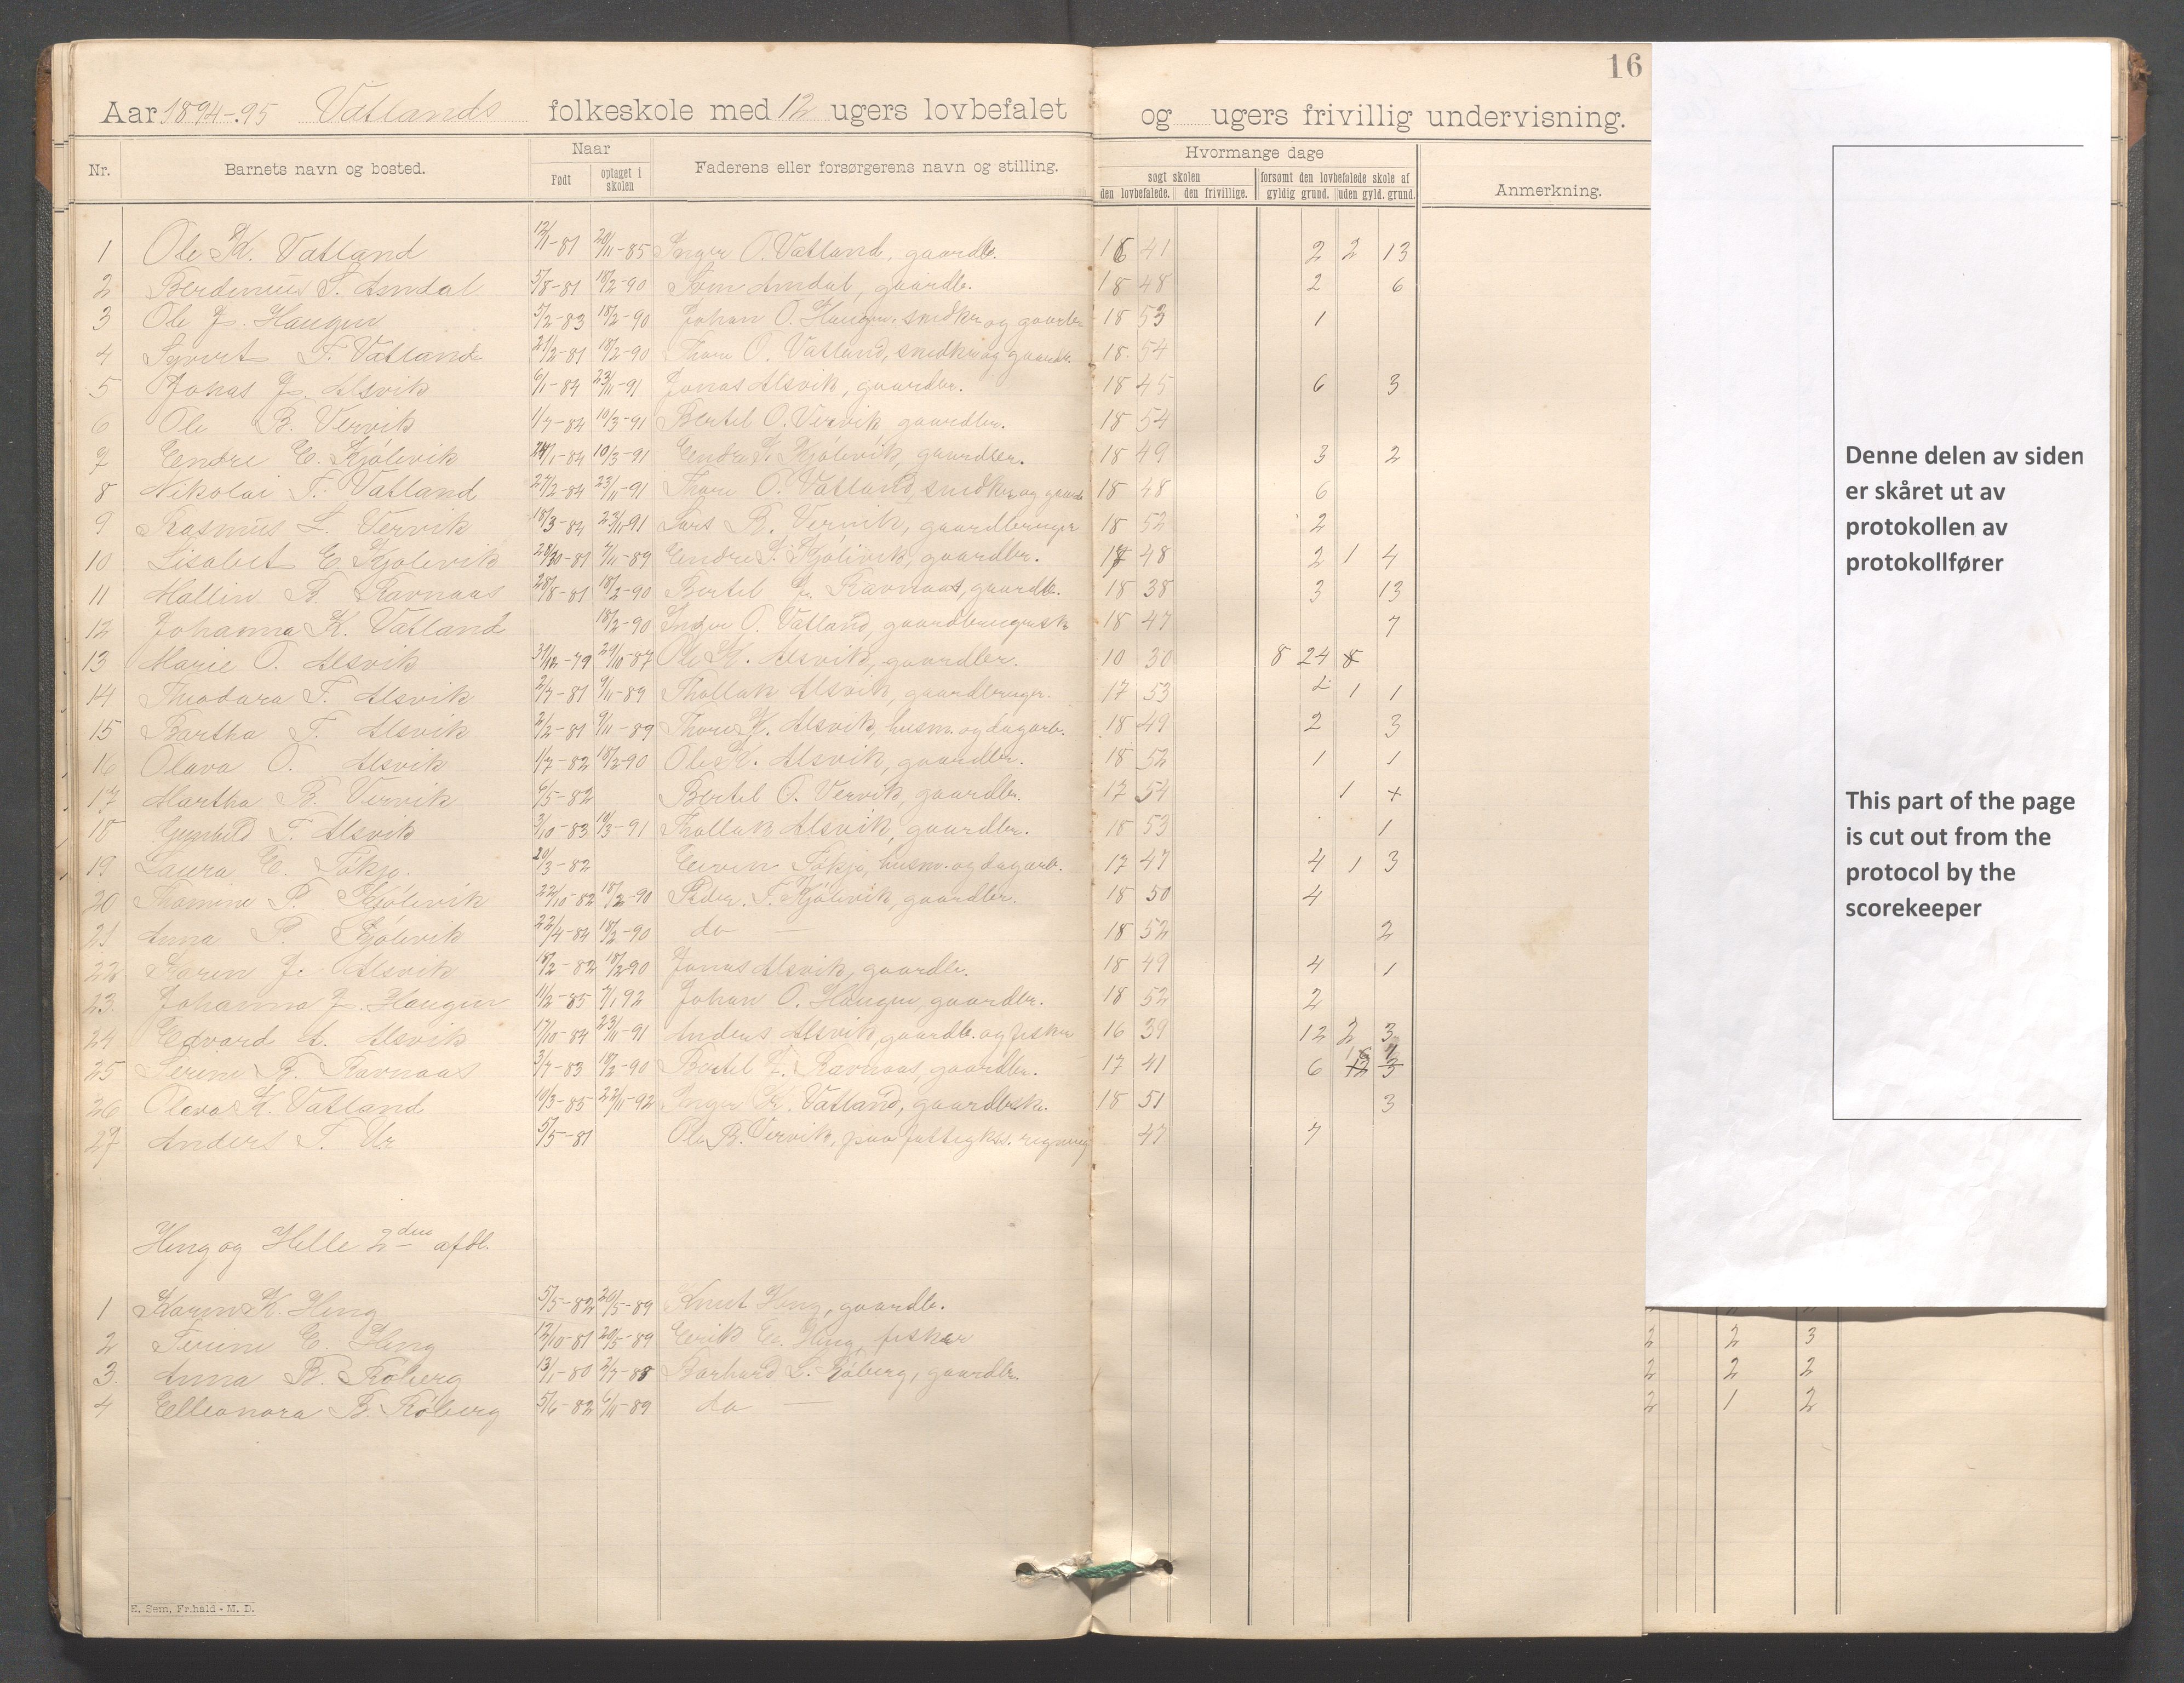 16
Aar 1894-95 Vatlands folkeskole med 12 ugers lovbefalet og ugers frivillig undervisning.
Nr. Barnets navn og bosted. Naar Født optaget i skolen Faderens eller forsørgerens navn og stilling. Hvormange dage søgt skolen den lovbefalede. den frivillige. forsømt den lovbefalede skole af gyldig grund. uden gyld. grund. Anmerkning.
1 Ole K. Vatland 12/1-81 20/11-85 Inger O. Vatland, gaardb. 16 41 2 2 13
2 Berdinius S. Amdal 5/8-81 18/2-90 Amdal, gaardb. 18 48 2 6
3 Ole J. Haugen 5/2-83 18/2-90 Johan O. Haugen, snedker og gaardbr 18 53 1
4 Syvert T. Vatland 21/2-81 18/2-90 Thore O. Vatland, snedker og gaardb. 18 54
5 Jonas J. Alsvik 6/1-84 23/11-91 Jonas Alsvik, gaardbr. 18 45 6 3
6 Ole B. Vervik 1/7-84 10/3-91 Bertel O. Vervik, gaardbr. 18 54
7 Endre E. Kjölevik 24/1-84 10/3-91 Endre Kjölevik, gaardbr. 18 49 3 2
8 Nikolai T. Vatland 27/2-84 23/11-91 Thore O. Vatland, snedker og gaardb 18 48 6
9 Rasmus L. Vervik 18/3-84 23/11-91 Lars R. Vervik, gaardbruger 18 52 2
10 Lisabet E. Kjölevik -81 9/11-89 Endre Kjölevik, gaardbr. 17 48 2 1 4
11 Mallin B. Ravnaas 28/8-81 18/2-90 Bertel J. Ravnaas, gaardb. 18 38 3 13
12 Johanna K. Vatland 18/2-90 Inger O. Vatland, gaardbrugersk 18 47 7
13 Marie O. Alsvik 31/12-79 29/10-87 Ole K. Alsvik, gaardbr. 10 30 8 24 8
14 Theodora T. Alsvik 2/7-81 9/11-89 Thollak Alsvik, gaardbruger. 17 53 2 1 1
15 Bertha T. Alsvik 2/2-81 9/11-89 Thore K. Alsvik, husm. og dagarb. 18 49 2 3
16 Olava O. Alsvik 1/7-82 18/2-90 Ole K. Alsvik, gaardbr. 18 52 1 1
17 Martha B. Vervik 6/5-82 Bertel O. Vervik, gaardbr. 17 54 1 +
18 Gunhild T. Alsvik 3/10-83 10/3-91 Thollak Alsvik, gaardbr. 18 53 1
19 Laura E. Tökje. 20/3-82 Tökje, husm. og dagarb. 17 47 4 1 3
20 Thomine P. Kjölevik 22/10-82 18/2-90 Peder. T. Kjölevik, gaardbr. 18 50 4
21 Anna P. Kjölevik 22/4-84 18/2-90 do — 18 52 2
22 Karen J. Alsvik 18/2-82 18/2-90 Jonas Alsvik, gaardb. 18 49 4 1
23. Johanna J. Haugen 11/2-85 7/1 92 Johan O. Haugen, gaardbr. 18 52 2
24 Edvard A. Alsvik 17/10-84 23/11-91 Anders Alsvik, gaardb. og fisker 16 39 12 2 3
25 Serine B. Ravnaas 3/7-83 18/2-90 Bertel J. Ravnaas, gaardbr. 17 41 6
26 Olava K. Vatland 10/3-85 22/11-92 Inger K. Vatland, gaardbrsk. 18 51 3
27 Anders T. Ur 5/5-81 Ole B. Vervik, paa fattigkss. regning 47 7
Heng og Helle 2den afdl.
1 Karen K. Heng 5/5-82 20/5-89 Knut Heng, gaardb.
2 Serine E. Heng 12/10-81 20/5-89 Eerik Heng, fisker 2 2 3
3. Anna B. Röberg 13/1-80 2/7-88 Barhard L. Röberg, gaardbr. 2 2 2
4 Elleonora B. Röberg 5/6-82 6/11-89 do — 2 1 2
E. Sem, Fr.hald - M. D.
Denne delen av siden
er skåret ut av
protokollen av
protokollfører
This part of the page
is cut out from the
protocol by the
scorekeeper